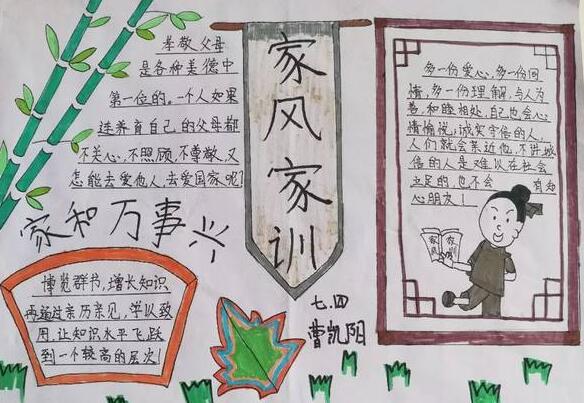 孝敬父母
是各种美德中
第一位的。一个人如果
连养育自己的父母都
不关心，不照顾，不尊敬，又
怎能去爱他人，去爱国家呢？
家和万事兴
博览群书，增长知识
再通过亲历亲见，学以致
用，让知识水平飞跃
到一个较高的层次！
家风家训
七.四
曹凯阳
多一份爱心，多一份同
情，多一份理解，与人为
善，和睦相处，自己也会心
情愉悦；诚实守信的人，
人们就会亲近他，不讲诚
信的人是难以在社会
立足的，也不会 有知
心朋友！
家风
家训